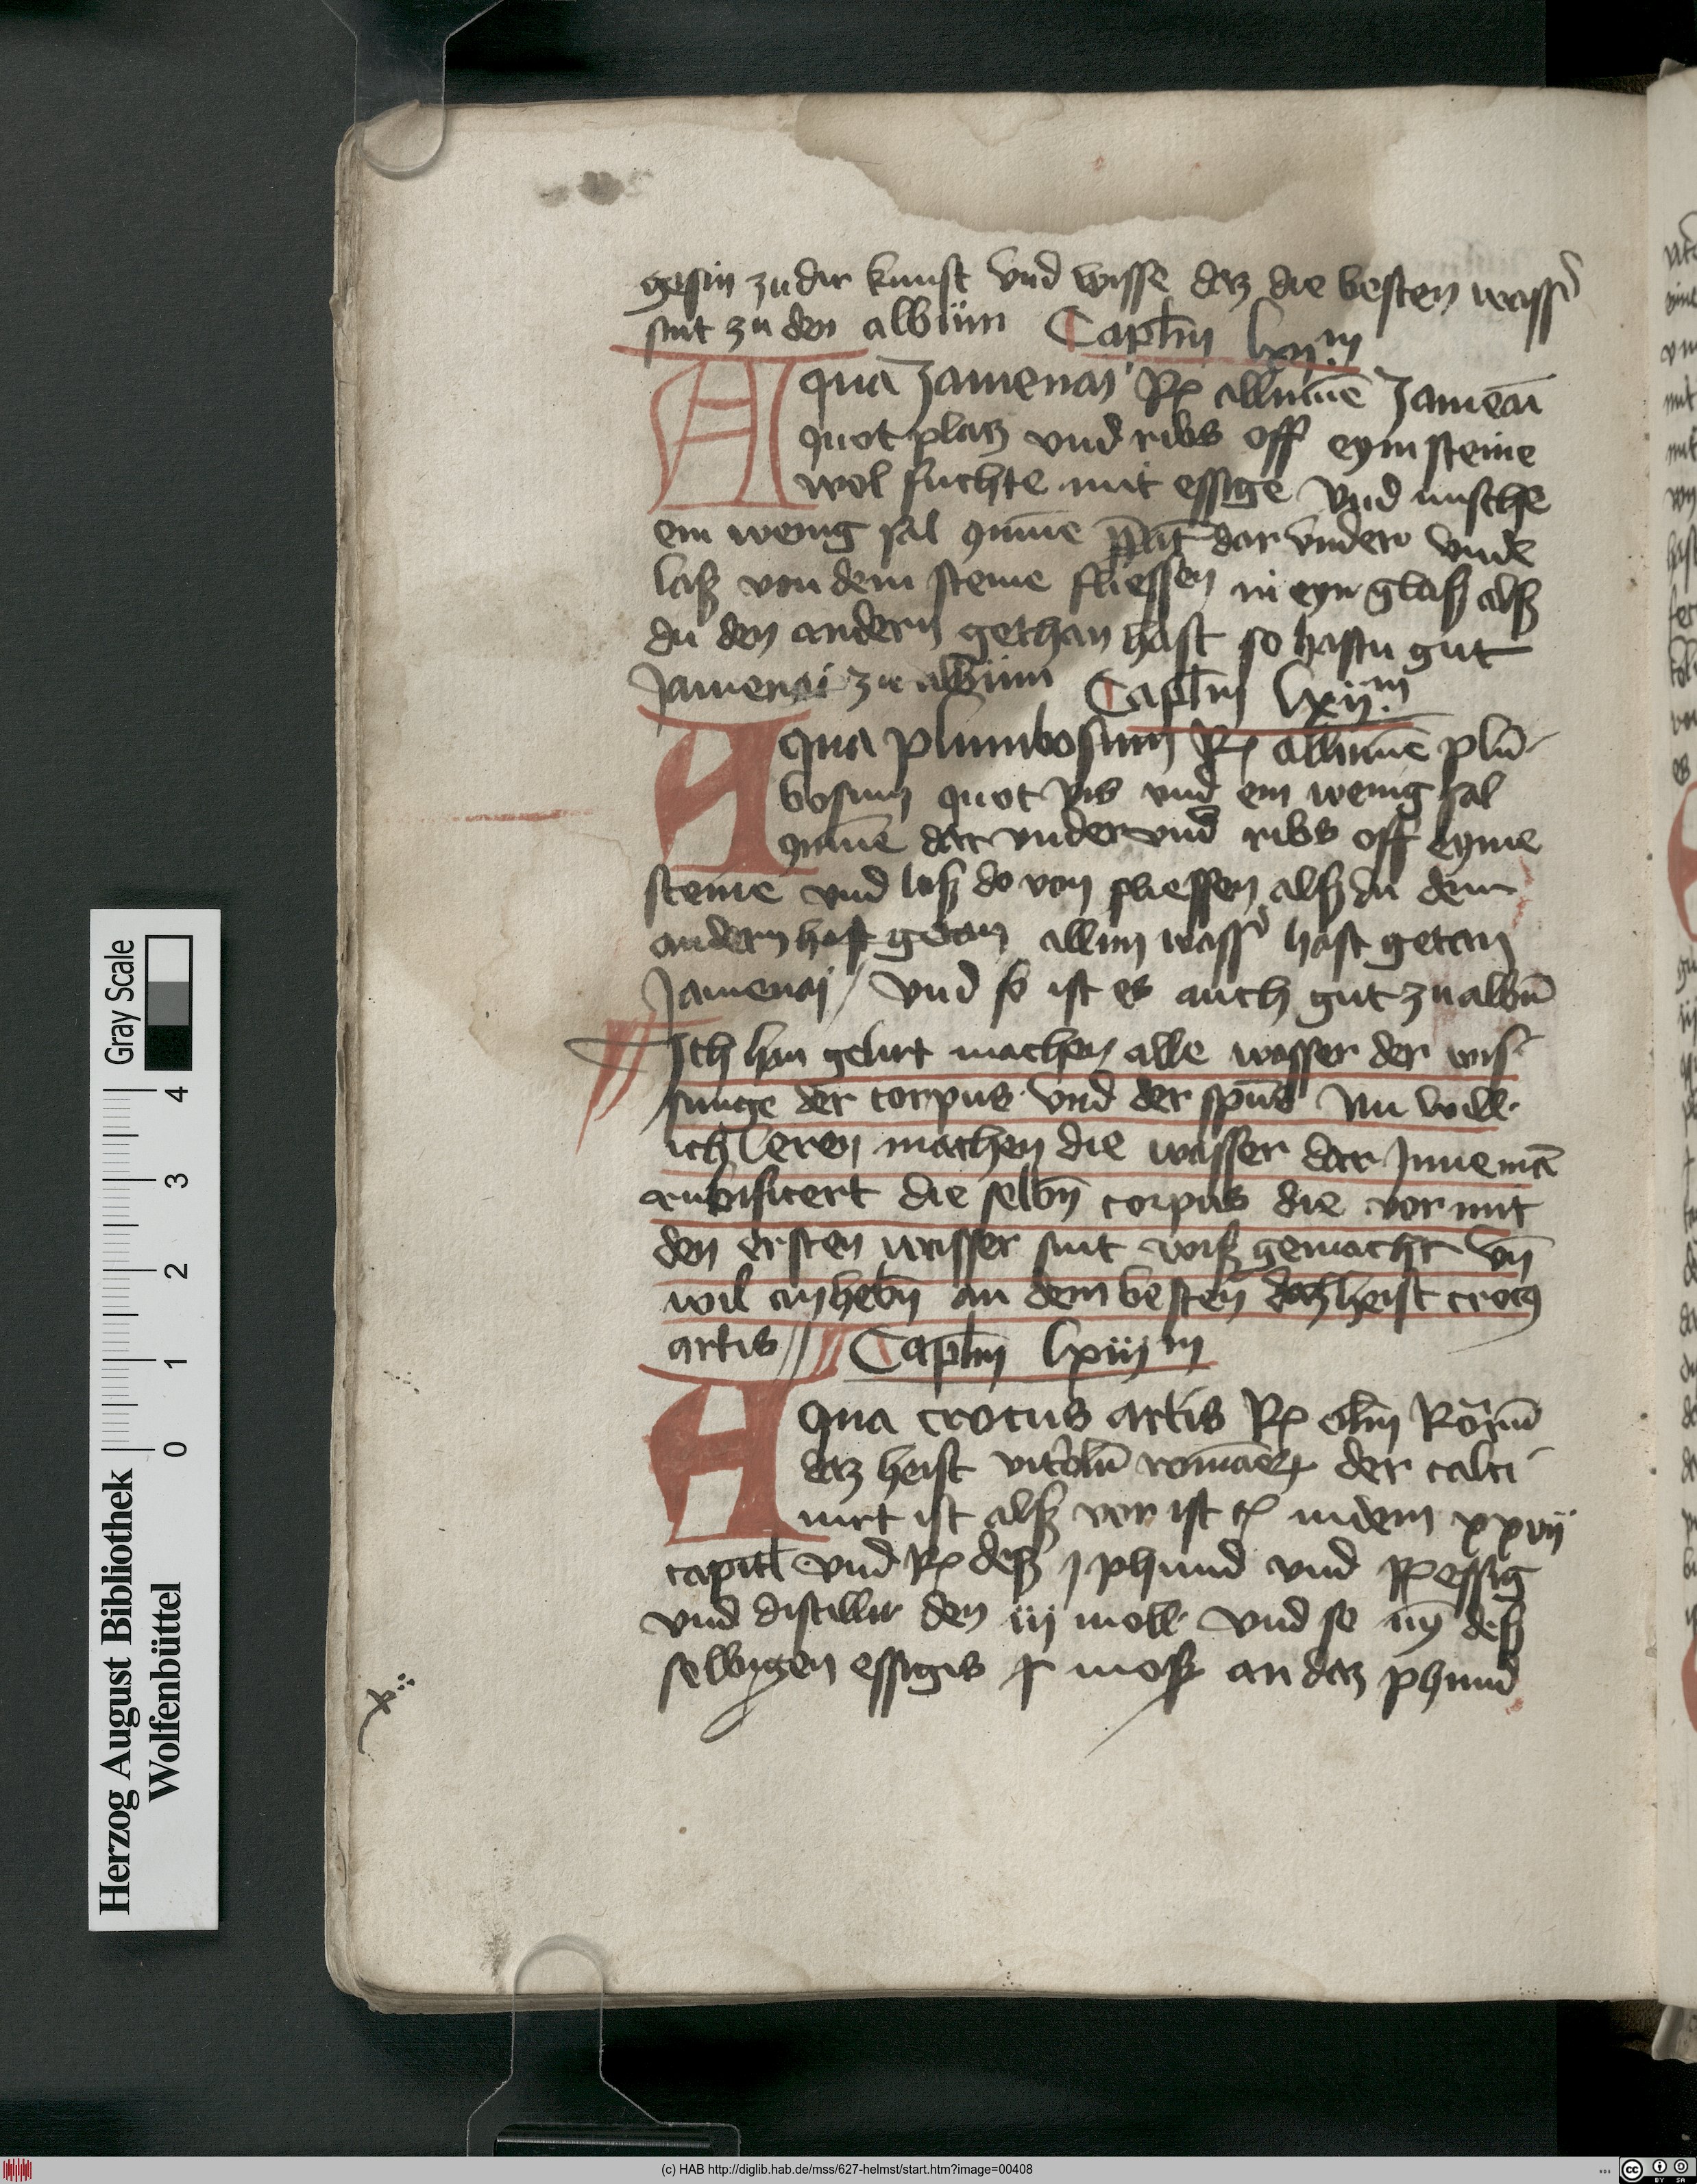 gesin zu der kunst vnd wisse daz die besten wass̄
sint zu den albüm Capl̄m lxijm
Aqua Jamenaj Rx allumē Jameāi
quot placz vnd ribs off eym steine
wol fuchte mit essige vnd mische
ein wenig sal ꝯmūe p̄pāt dar vnder vnde
laß von dem steine fliessen in eyn glaß alß
du den andern gethan hast so hastu gut
Jamenai zu albüm Capl̄m lxiijm
Aqua plumbosum Rx allumē plū
bosum quot vis vnd ein wenig sal
ꝯmūe dar vnder vnd ribs off eyme
steine vnd laß do von fliessen alß du dem
andern hast getan allun wass̄ hast getan
Jamenaj / vnd so ist es auch gut zu albū
Ich han gelirt machen alle wasser der wis
sunge der corpus vnd der sp̄us Nu will
ich leren machen die wasser dar Jnne mā
rubificert die selbn̄ corpus die vor mit
den ersten wasser sint wiß gemacht vn̄
wil anhebn̄ an dem besten daz heist crocꝯ
artis // Capl̄m lxiiijm
Aqua crocus artis Rx Romū
daz heist vitolū der calci
nirt ist alß vor ist in dem xxvij
capitl vnd Rx deß j phund vnd Rx essig
vnd distillir den iij moll vnd so nȳ deß
selbigen essigis moß an daz phund
Herzog August Bibliothek
Wolfenbüttel
0 1 2 3 4
Gray Scale
(c) HAB http://diglib.hab.de/mss/627-helmst/start.htm?image=00408